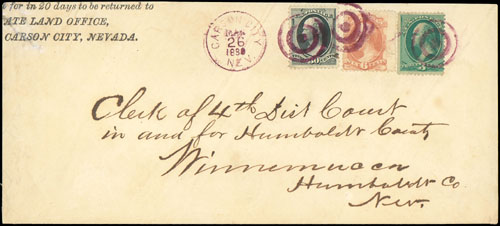 for in 20 days to be returned to
ATE LAND OFFICE,
CARSON CITY, NEVADA.
CARSON CITY
26
NEV.
Clerk of 4th Dist Court
in and for Humboldt County
Winnemucca
Humboldt Co.
Nev.